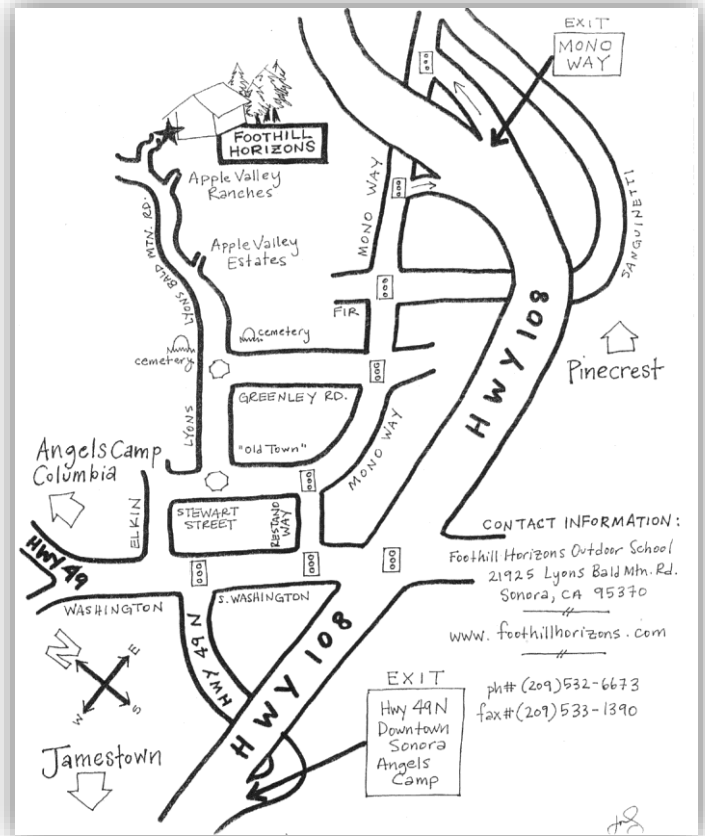 EXIT
MONO
WAY
FOOTHILL
HORIZONS
Apple Valley
Ranches
MONO WAY
SANGUINETTI
LYONS BALD MTN. RD.
Apple Valley
Estates
FIR
HWY 108
cemetery
cemetery
Pinecrest
GREENLEY RD.
LYONS
"Old Town"
MONO WAY
Angels Camp
Columbia
ELKIN
STEWART
STREET
RESTANO
WAY
HWY 49
WASHINGTON
S. WASHINGTON
HWY 49 N
HWY 108
CONTACT INFORMATION:
Foothill Horizons Outdoor School
21925 Lyons Bald Mtn. Rd.
Sonora, CA 95370
www.foothillhorizons.com
ph# (209) 532-6673
fax# (209) 533-1390
N
E
W
S
EXIT
Hwy 49N
Downtown
Sonora
Angels
Camp
Jamestown